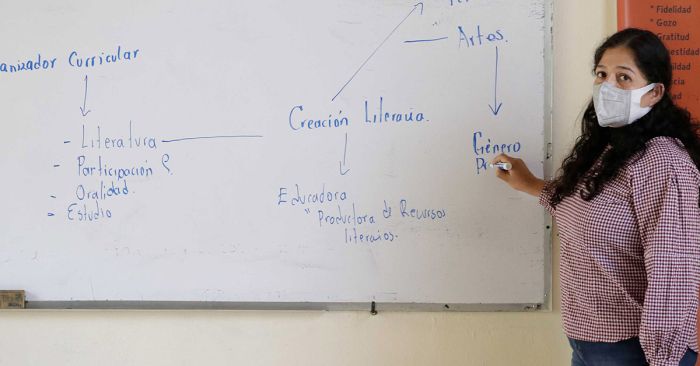 Curricular
- Literatura
- Participación
- Oralidad.
- Estudio
Creación Literaria.
Educadora
"Productora de Recursos
literarios.
Artes.
Género
* Fidelidad
* Gozo
Gratitud